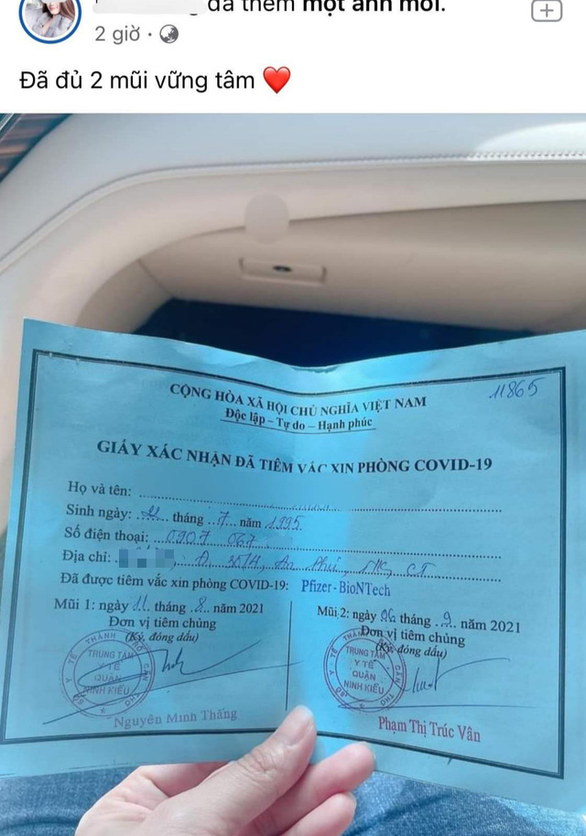 đã thêm một ảnh mới.
2 giờ ·
Đã đủ 2 mũi vững tâm ❤️
11865
CỘNG HÒA XÃ HỘI CHỦ NGHĨA VIỆT NAM
Độc lập – Tự do – Hạnh phúc
GIẤY XÁC NHẬN ĐÃ TIÊM VẮC XIN PHÒNG COVID-19
Họ và tên:
Sinh ngày: tháng 7 năm 1995
Số điện thoại: 0907 067
Địa chỉ: An Phú,
Đã được tiêm vắc xin phòng COVID-19: Pfizer-BioNTech
Mũi 1: ngày 11 tháng 8 năm 2021
Đơn vị tiêm chủng
(Ký, đóng dấu)
TRUNG TÂM
Y TẾ
QUẬN
NINH KIỀU
Nguyễn Minh Thắng
Mũi 2: ngày 06 tháng 9 năm 2021
Đơn vị tiêm chủng
(Ký, đóng dấu)
TRUNG TÂM
Y TẾ
QUẬN
NINH KIỀU
Phạm Thị Trúc Vân